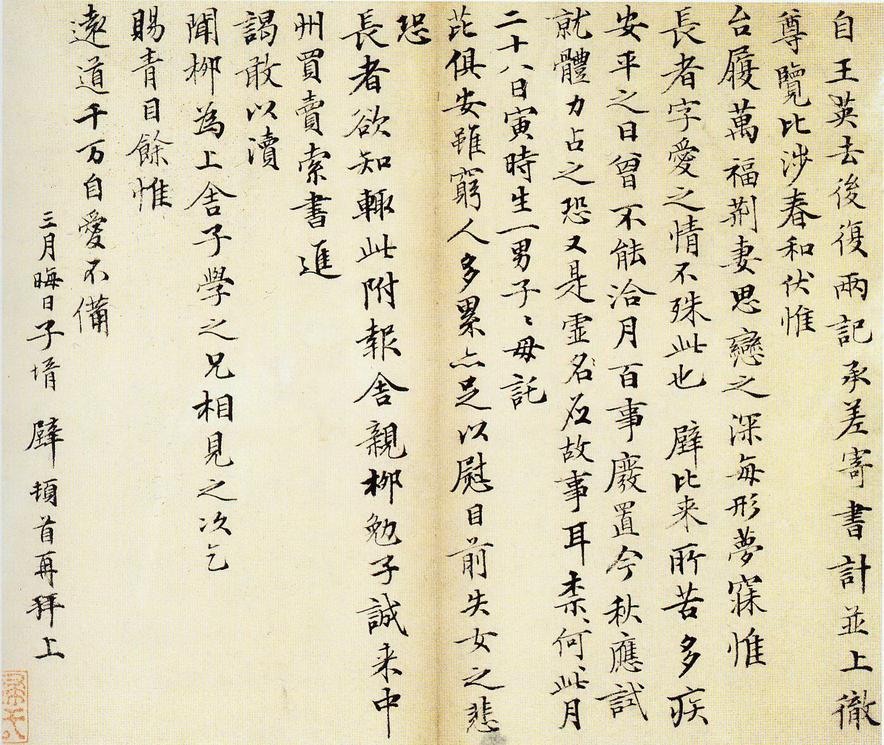 自王英去後復兩記承差寄書計並上徹
尊覽比涉春和伏惟
台履萬福荊妻思戀之深每形夢寐惟
長者字愛之情不殊此也 驊比来所苦多疾
安平之日曾不能浹月百事廢置今秋應試
就體力占之恐又是虛名应故事耳柰何此月
二十八日寅時生一男子〻母託
芘俱安雖窮人多累亦足以慰目前失女之悲
恐
長者欲知輒此附報舍親柳勉子誠来中
州買賣索書進
謁敢以瀆
聞柳為上舍子學之兄相見之次乞
賜青目餘惟
遠道千万自愛不備
三月晦日子壻 頓首再拜上